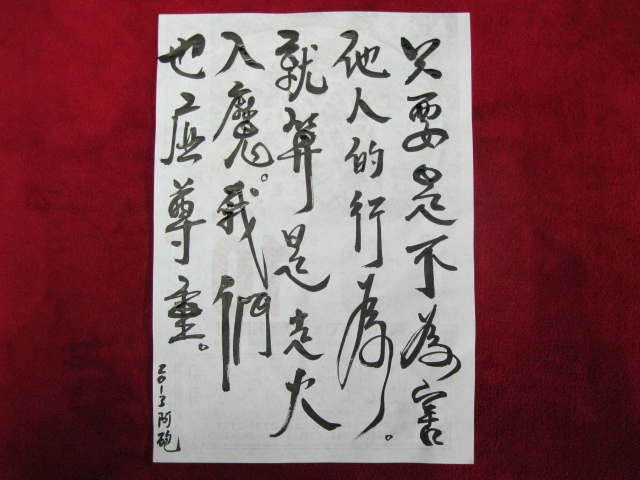 只要是不為害
他人的行為。
就算是走火
入魔。我們
也應尊重。
2013阿砲